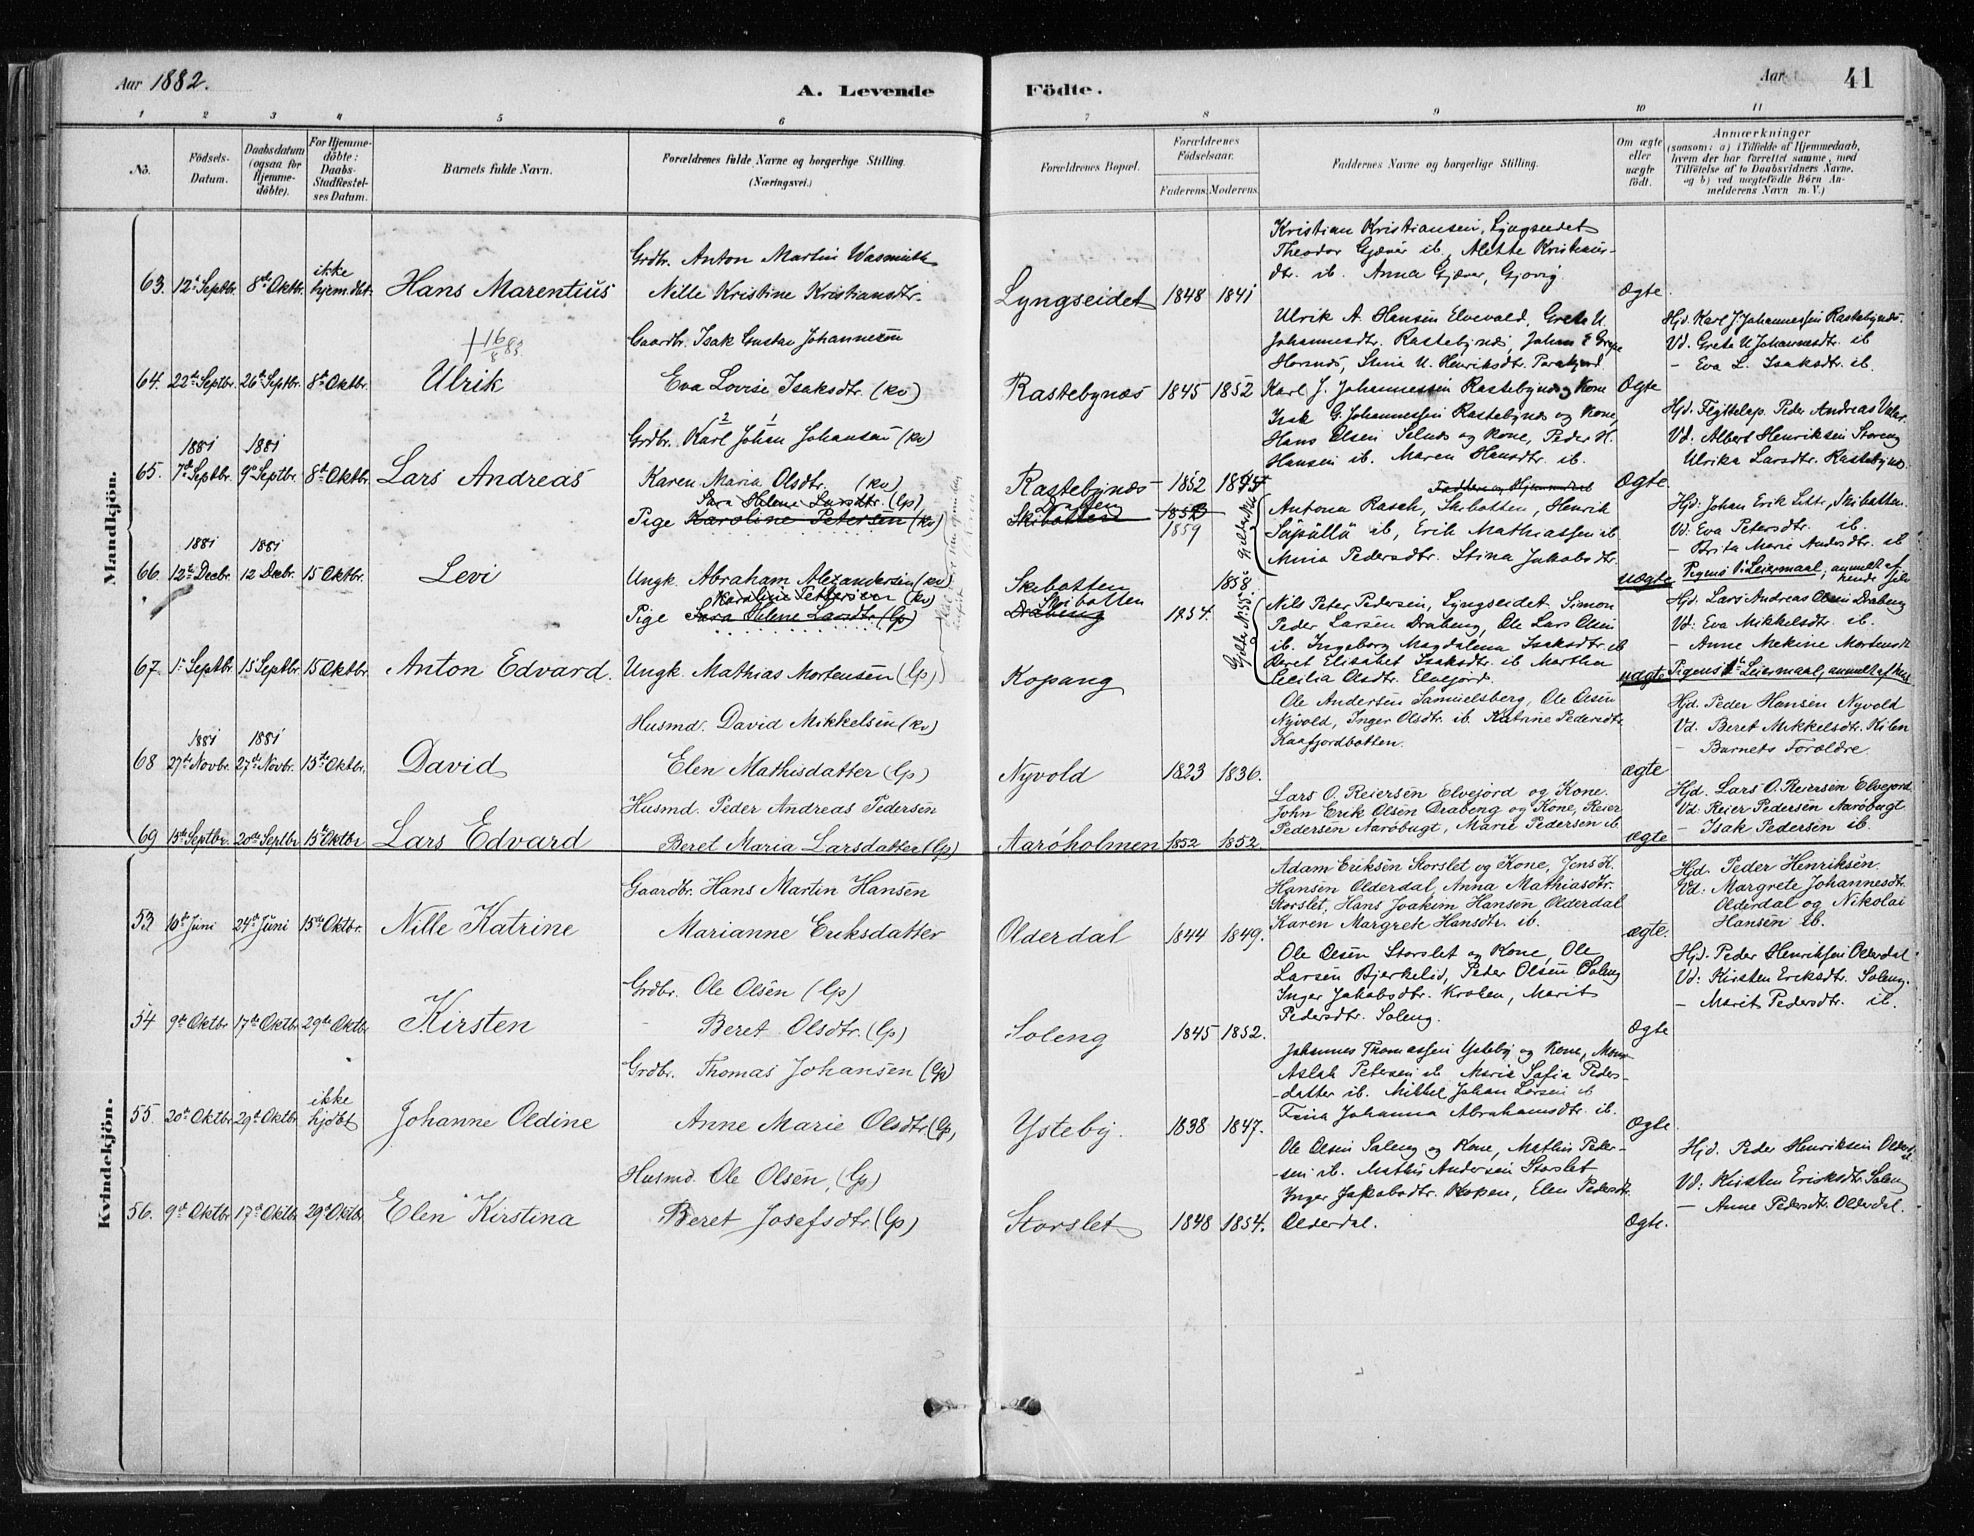 Aar 1882.
A. Levende
Födte.
Aar
41
1 2 3 4 5 6 7 8 9 10 11
No.
Födsels-Datum.
Daabsdatum (ogsaa for Hjemme-döbte).
For Hjemme-döbte: Daabs-Stadfæstel-ses Datum.
Barnets fulde Navn.
Forældrenes fulde Navne og borgerlige Stilling.
(Næringsvei.)
Forældrenes Bopæl.
Forældrenes Födselsaar.
Faderens. Moderens.
Faddernes Navne og borgerlige Stilling.
Om ægte eller uægte födt.
Anmærkninger
(saasom: a) i Tilfælde af Hjemmedaab,
hvem der har forrettet samme, med
Tilföielse af to Daabsvidners Navne.
og b) ved uægtefödte Börn An-
melderens Navn m. V.)
Mandkjön.
Grdbr. Anton Martin Wasmuth
63. 12te Septbr. 8de Oktbr. ikke hjem.dbt. Hans Marentius Nille Kristine Kristiansdtr.
Lyngseidet 1848 1841
Kristian Kristiansen, Lyngseidet
Theodor Gjæver ib, Alette Kristians-
dtr. ib. Anna Gjæver, Gjovig
Ægte
† 16/8 83.
Gaardbr. Isak Gustav Johannesen
64. 22de Septbr. 26de Septbr. 8de Oktbr. Ulrik Eva Lovise Isaksdtr. (kv)
Rastebynæs 1845 1852
Ulrik A. Hansen Elvevold, Grete U.
Johannesdtr. Rastebynæs, Johan E
Hornæs, Stina U. Henriksdtr.
Karl J. Johannessen Rastebynæs og Kone
Ægte
Hjd. Karl J. Johannessen Rastebynæs.
Vd. Grete U Johannesdtr. ib
- Eva L. Isaksdtr. ib.
2 1
Grdbr. Karl Johan Johansen (kv)
1881 1881
65. 7de Septbr. 9de Septbr. 8de Oktbr. Lars Andreas Karen Maria Olsdtr. (kv)
Rastebynæs 1852
Isak G. Johannessen Rastebynæs og Kone,
Hans Olsen Selnæs og Kone, Peder H.
Hansen ib. Maren Hansdtr. ib.
Ægte
Hjd. Peder Andreas
Vd: Albert Henriksen Storeng
Ulrika Larsdtr. Rastebynæs.
Sara Helene Larsdtr. (lp)
Pige Karoline Petersen (kv)
Drabeng
Skibotten
1859
1881 1881
66. 12te Decbr. 12 Decbr. 15 Oktbr. Levi Ungk. Abraham Alexandersen (kv)
Skibotten 1858.
Antona Rasch, Skibotten, Henrik
ib, Erik Mathiassen ib
Mina Pedersdtr. Stina Jakobsdtr.
uægte
Hjd. Johan Erik Skibotten.
Vd: Eva Petersdtr. ib.
- Brita Marie Andersdtr. ib
Pigens 1ste Leiermaal; anmeldt af hende selv
Karoline Pettersen (kv)
Pige Sara Helene Larsdtr. (lp)
Skibotten
Drabeng 1854.
67. 1ste Septbr. 15 Septbr. 15 Oktbr. Anton Edvard. Ungk. Mathias Mortensen (lp)
Kopang
Nils Peter Pedersen, Lyngseidet. Simon
Peder Larsen Drabeng, Ole Lars Olsen
ib. Ingeborg Magdalena Isaksdtr. ib
Beret Elisabet Isaksdtr. ib Martha
Cecilia Olsdtr. Elvejord.
uægte
Hjd. Lars Andreas Olsen Drabeng
Vd: Eva Mikkelsdtr. ib.
- Anne Mekine Mortensdtr
Pigens 1ste Leiermaal, anmeldt af
Husmd. David Mikkelsen (kv)
1881 1881
68 27de Novbr. 27de Novbr. 15de Oktbr. David Elen Mathisdatter (lp)
Nyvold 1823 1836.
Ole Andersen Samuelsberg, Ole Olsen
Nyvold, Inger Olsdtr. ib. Katrine Pedersdtr.
Kaafjordbotten.
ægte
Hjd. Peder Hansen Nyvold
Vd. Beret Mikkelsdtr. Kilen
- Barnets Forældre.
Husmd. Peder Andreas Pedersen
69 15de Septbr. 20de Septbr 15de Oktbr Lars Edvard Beret Maria Larsdatter (lp)
Aaröholmen 1852 1852.
Lars O. Reiersen Elvejord og Kone.
John Erik Olsen Drabeng og Kone, Reier
Pedersen Aaröbugt, Marie Pedersen ib
ægte
Hjd. Lars O. Reiersen Elvejord
Vd: Reier Pedersen Aaröbugt
- Isak Pedersen ib.
Kvindekjön.
Gaardbr. Hans Martin Hansen
53. 10de Juni 24de Juni 15de Oktbr. Nille Katrine Marianne Eriksdatter
Olderdal 1844 1849.
Adam Eriksen Storslet og Kone, Jens H.
Hansen Olderdal, Anna Mathiasdtr.
Storslet, Hans Joakim Hansen Olderdal
Karen Margrete Hansdtr. ib.
ægte.
Hjd. Peder Henriksen.
Vd. Margrete Johannesdtr.
Olderdal og Nikolai
Hansen ib.
Grdbr. Ole Olsen (lp)
54 9de Oktbr 17de Oktbr 29de Oktbr. Kirsten Beret Olsdtr. (lp)
Soleng 1845 1852.
Ole Olsen Storslet og Kone, Ole
Larsen Bjerkelid, Peder Olsen Soleng
Inger Jakobsdtr. Kroken, Marit
Pedersdtr. Soleng.
Ægte
Hjd. Peder Henriksen Olderdal
Vd: Kirsten Eriksdtr. Soleng.
- Marit Pedersdtr. ib.
Grdbr. Thomas Johansen (lp)
55. 20de Oktbr 29de Oktbr. ikke hjdbt Johanne Oldine Anne Marie Olsdtr (lp)
Ysteby. 1838 1847.
Johannes Thomassen Ysteby og Kone,
Aslak Petersen ib Marie Sofia Peders-
datter ib. Mikkel Johan Larsen ib
Johanna Abrahamsdtr. ib.
Ægte.
Husmd. Ole Olsen, (lp)
56. 9de Oktbr 17de Oktbr. 29de Oktbr. Elen Kirstina Beret Josefsdtr. (lp)
Storslet 1848 1854.
Ole Olsen Soleng og Kone, Mathis Peder-
-sen ib. Mathis Andersen Storslet
Inger Jakobsdtr. Elen Pedersdtr.
Olderdal.
Ægte.
Hjd. Peder Henriksen
Vd: Kirsten Eriksdtr. Soleng
- Anne Pedersdtr. Olderdal.